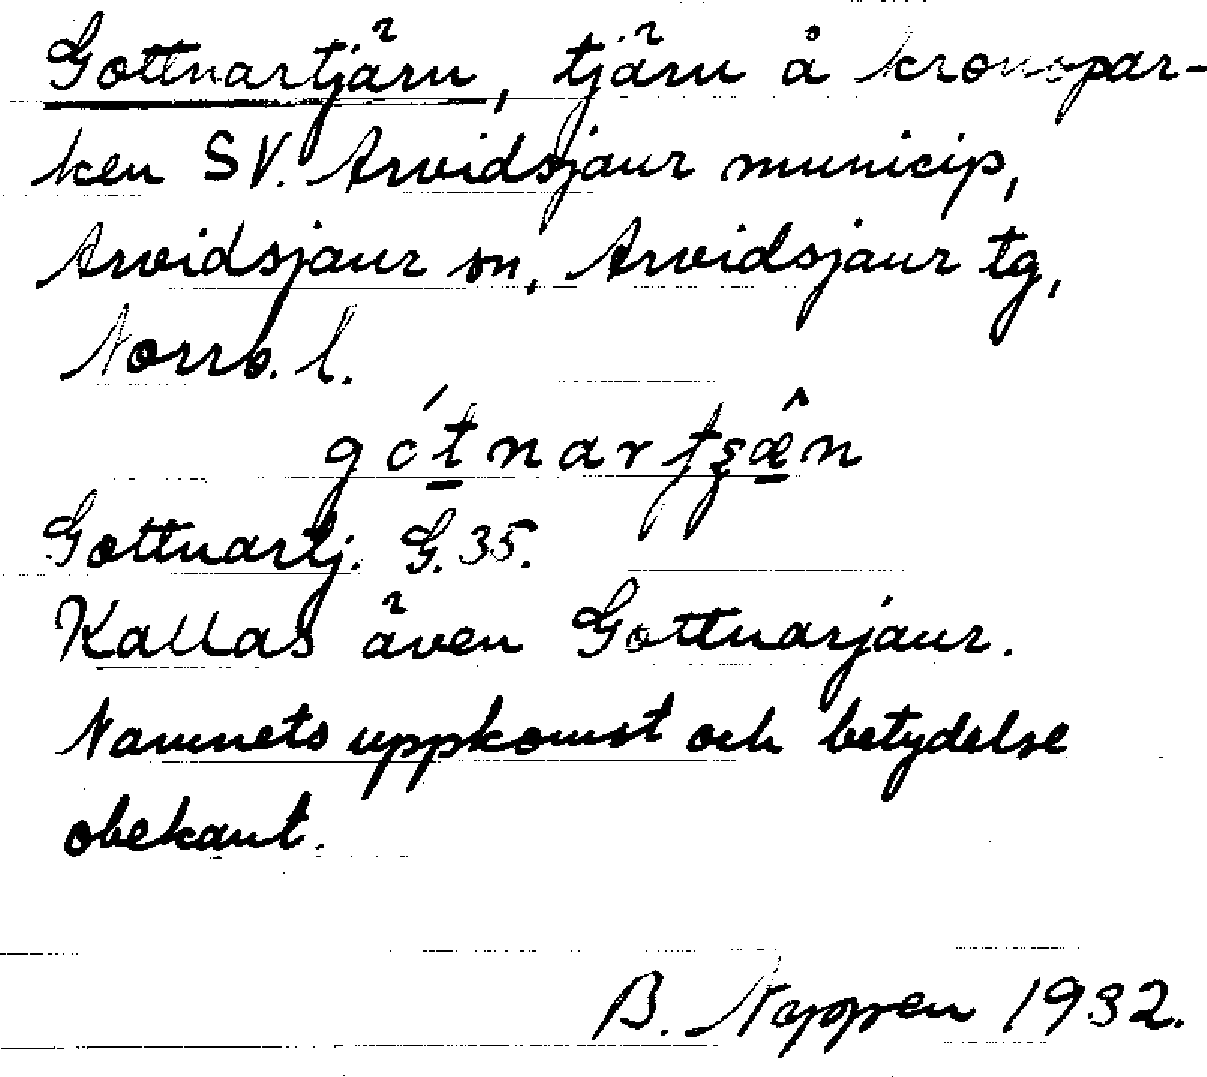 Gottnartjärn, tjärn å kronopar-
ken SV. Arvidsjaur municip,
Arvidsjaur sn, Arvidsjaur tg,
Norrb. l.
Gottnartj. G.35.
Kallas även Gottnarjaur.
Namnets uppkomst och betydelse
obekant.
B. Noppen 1932.